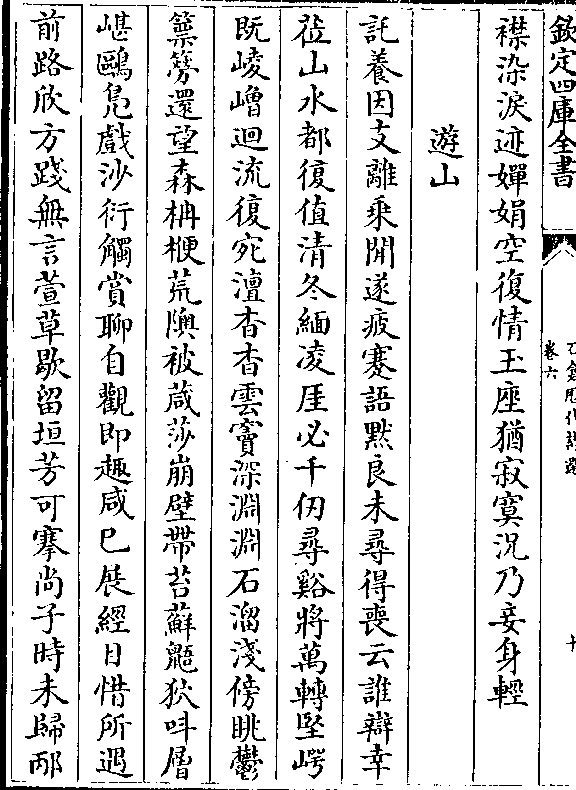 欽定四庫全書
卷六
十
襟染淚迹嬋娟空復情玉座猶寂寞況乃妾身輕
遊山
託養因支離乗閒遂疲蹇語黙良未尋得喪云誰辯幸
莅山水都復值清冬緬凌厓必千仞尋谿將萬轉堅崿
既崚嶒迴流復宛澶杳杳雲竇深淵淵石溜淺傍眺鬱
篻簩還望森柟楩荒隩被葴莎崩壁帶苔蘚鼯狖叫層
嵁鷗鳧戲沙衍觸賞聊自觀即趣咸已展經目惜所遇
前路欣方踐無言萱草歇留垣芳可搴尚子時未歸邴